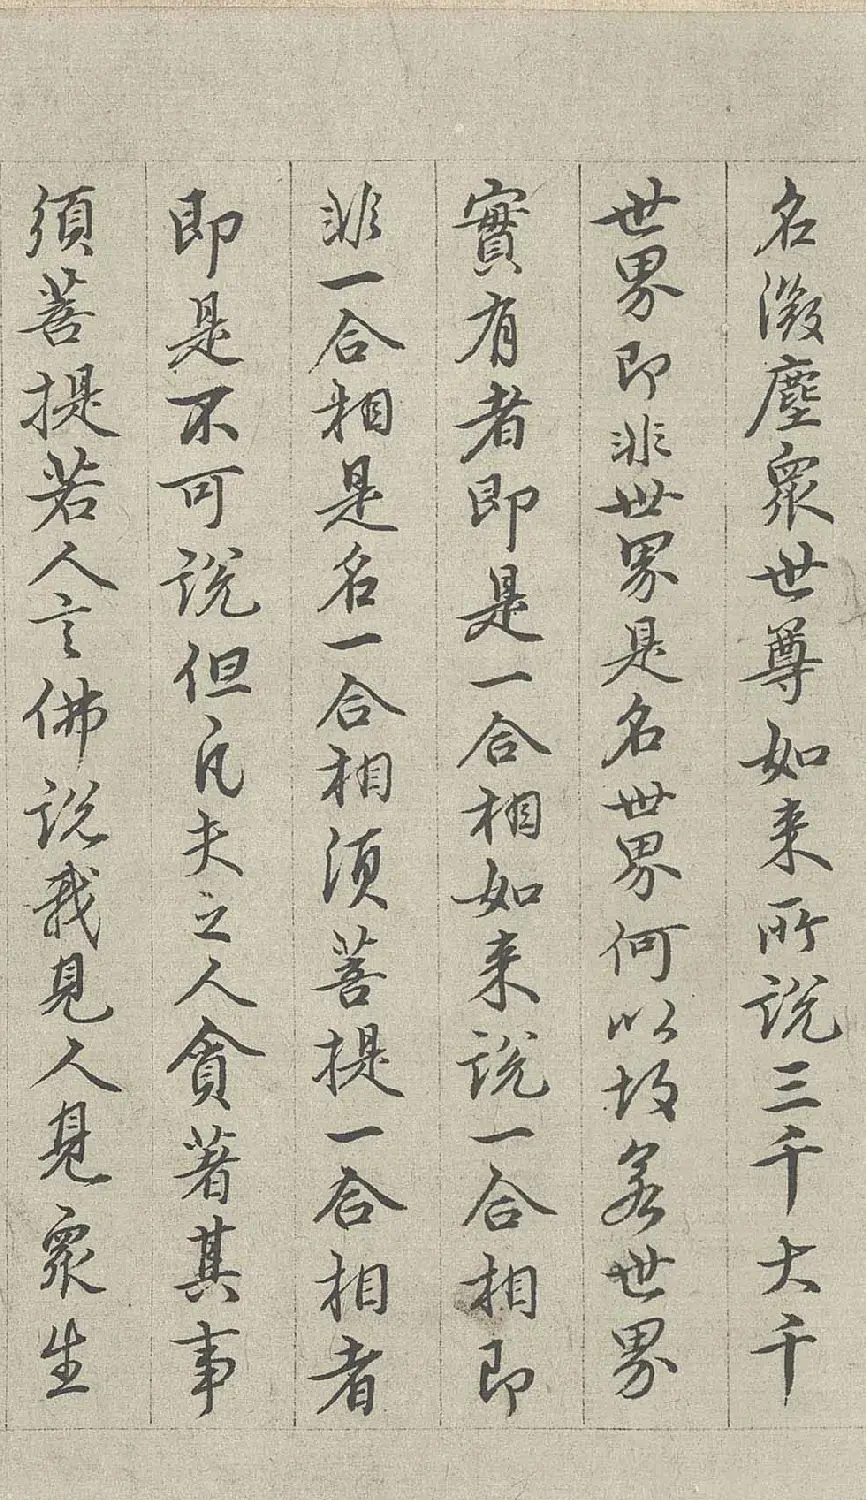 名微塵眾世尊如来所説三千大千
世界即非世界是名世界何以故若世界
實有者即是一合相如来説一合相即
非一合相是名一合相須菩提一合相者
即是不可説但凡夫之人貪著其事
須菩提若人言佛説我見人見眾生